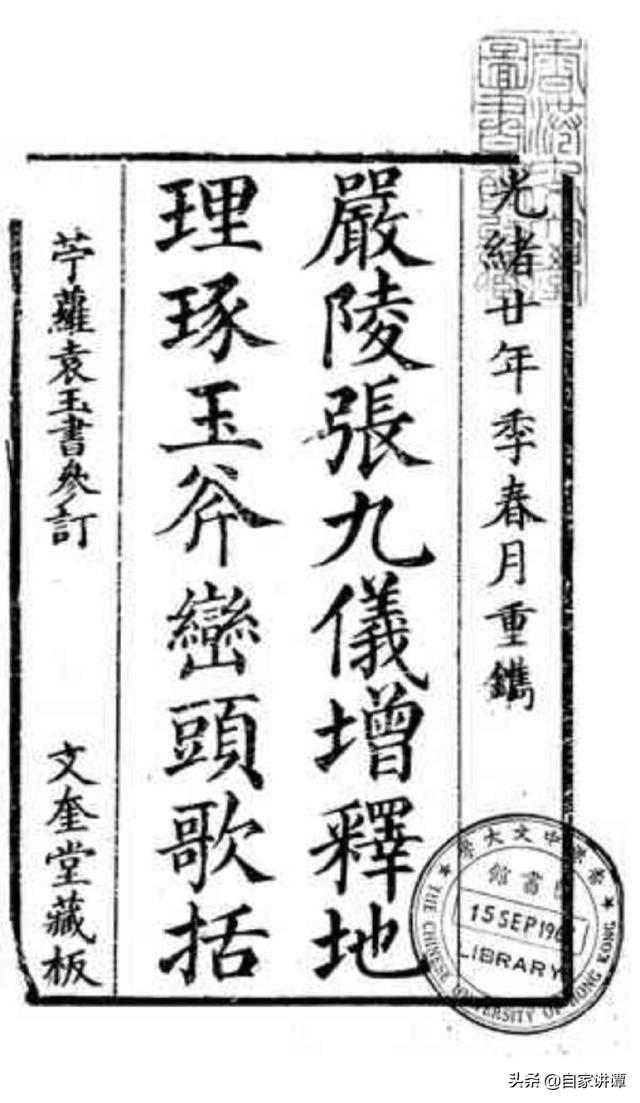 光緒廿年季春月重鐫
嚴陵張九儀增釋地
理琢玉斧巒頭歌括
苧蘿袁玉書參訂
文奎堂藏板
香港中文大學
圖書館
15 SEP 196
LIBRARY
THE CHINESE UNIVERSITY OF HONG KONG
头条 @自家讲谭